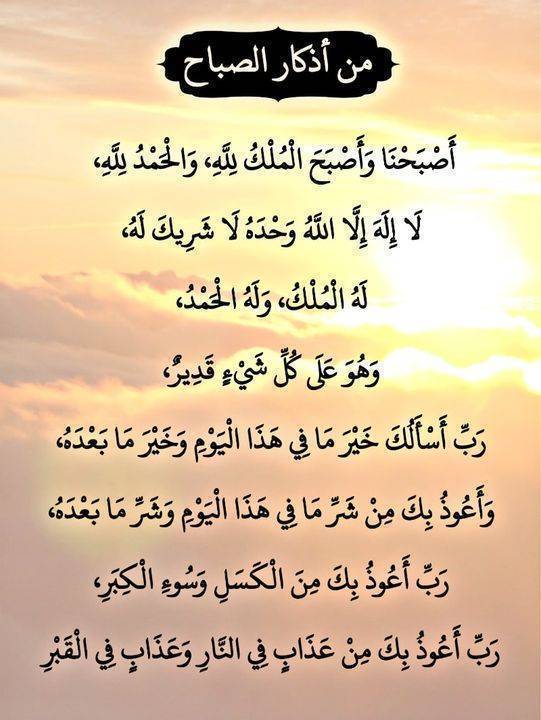 من أذكار الصباح
أَصْبَحْنَا وَأَصْبَحَ الْمُلْكُ لِلَّهِ، وَالْحَمْدُ لِلَّهِ،
لَا إِلَهَ إِلَّا اللَّهُ وَحْدَهُ لَا شَرِيكَ لَهُ،
لَهُ الْمُلْكُ، وَلَهُ الْحَمْدُ،
وَهُوَ عَلَى كُلِّ شَيْءٍ قَدِيرٌ،
رَبِّ أَسْأَلُكَ خَيْرَ مَا فِي هَذَا الْيَوْمِ وَخَيْرَ مَا بَعْدَهُ،
وَأَعُوذُ بِكَ مِنْ شَرِّ مَا فِي هَذَا الْيَوْمِ وَشَرِّ مَا بَعْدَهُ،
رَبِّ أَعُوذُ بِكَ مِنَ الْكَسَلِ وَسُوءِ الْكِبَرِ،
رَبِّ أَعُوذُ بِكَ مِنْ عَذَابٍ فِي النَّارِ وَعَذَابٍ فِي الْقَبْرِ